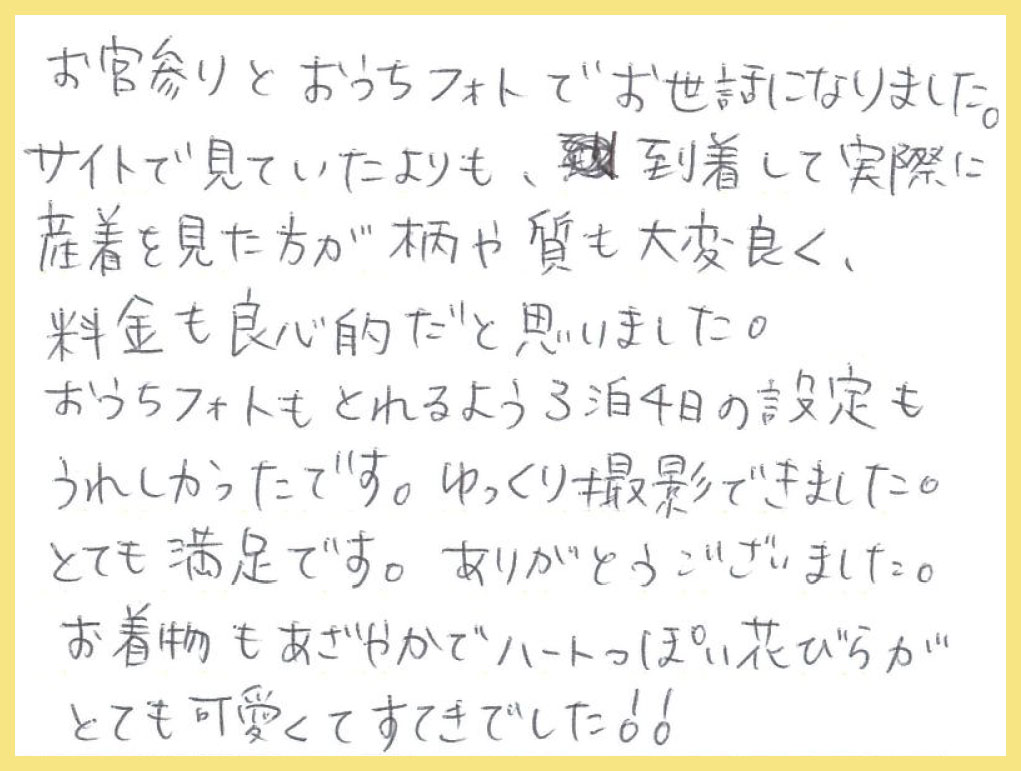 お宮参りとおうちフォトでお世話になりました。
サイトで見ていたよりも、到着して実際に
産着を見た方が柄や質も大変良く、
料金も良心的だと思いました。
おうちフォトもとれるよう3泊4日の設定も
うれしかったです。ゆっくり撮影できました。
とても満足です。ありがとうございました。
お着物もあざやかでハートっぽい花びらが
とても可愛くてすてきでした!!